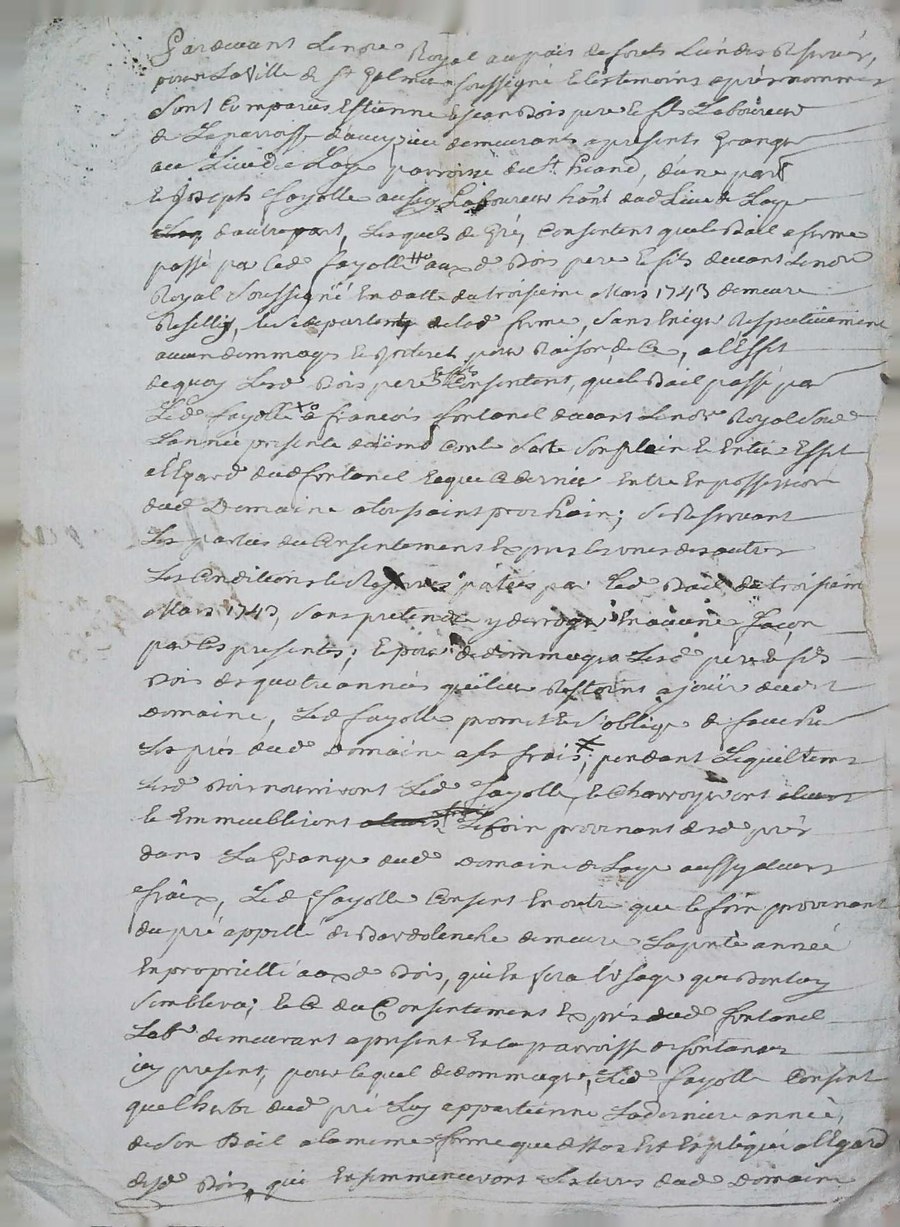 Pardevant Le nore Royal au païs de forets Lieu de Reservé,
pour La Ville de St Galmier soussigné et les temoins apres nommes
Sont Comparus Estienne et Jean Bois pere et fils Laboureurs
de La parroisse d'aveyzieu demeurants a presents Granger
au Lieu de Laye parroisse de St heand, d'une part
et Joseph fayolle aussy Laboureur hant dud Lieu de Laye
d'autre part, Lesquels de Gré, Consentent que le Bail a ferme
passé par Led fayolle auxd Bois pere et fils devant Le nore
Royal Soussigné En datte du troisieme Mars 1743 demeure
Resillié, de lad ferme, sans Exiger Respectivement
aucun dommage et Interet pour Raison de Ce, a l'Effet
de quoy Lesd Bois pere et fils Consentent, que le Bail passé par
Led fayolle a francois fontanel devant Le nore Royal Soud
L'année presente Sorte Son plain et Entier Effet
a l'Egard dud fontanel Et que Ce dernier Entre En possession
dud Domaine a toussaint prochain; Se Reservant
Les parties du Consentement Expres les unes des autres
Les Conditions et Reserves par Led Bail du troisieme
Mars 1743, Sans pretendre y deroger En aucune façon
par Ces presentes; et pour dedommager Lesd pere et fils
Bois des quatre années qu'il leur Restoint a joüir dudit
Domaine, Led fayolle promet et s'oblige de faucher
Les prés dud Domaine a ses frais; pendant Lequel tems
Lesd Bois nouriront Led fayolle, et Charroyeront
et Emmeubleront Le foin provenant desd prés
dans La Grange dud Domaine de Laye aussy a leurs
fraix, Led fayolle Consent En outre que le foin provenant
du pré appellé de Bardolenche demeure La pnte année
En proprietté auxd Bois, qui En fera l'usage que Bon luy
Semblera; et Ce du Consentement Expres dud fontanel
Labr demeurant a present En La parroisse de fontanes
icy present, pour lequel dedommager, Led fayolle Consent
que l'herbe dud pré Luy appartienne La derniere année,
de Son Bail a la meme forme que dessus Est Expliqué a l'Egard
desd Bois, qui Ensemenceront Les terres dud Domaine